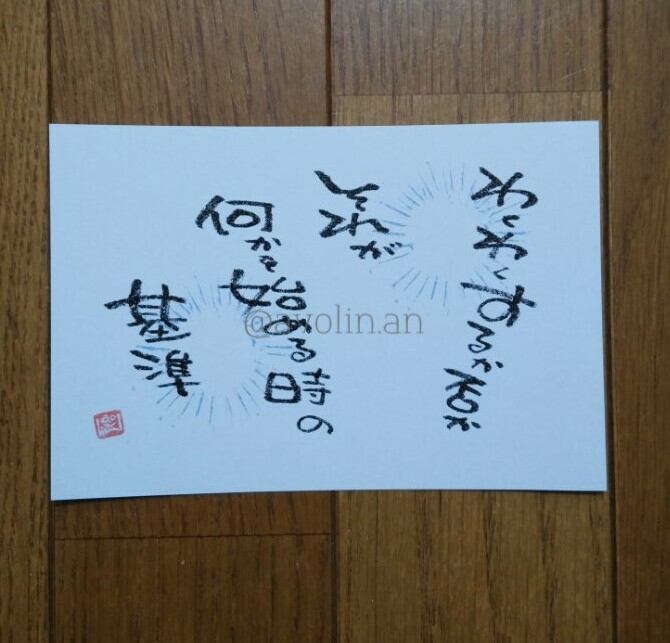 わくわくするか否か
それが
何かを始める時の
基準